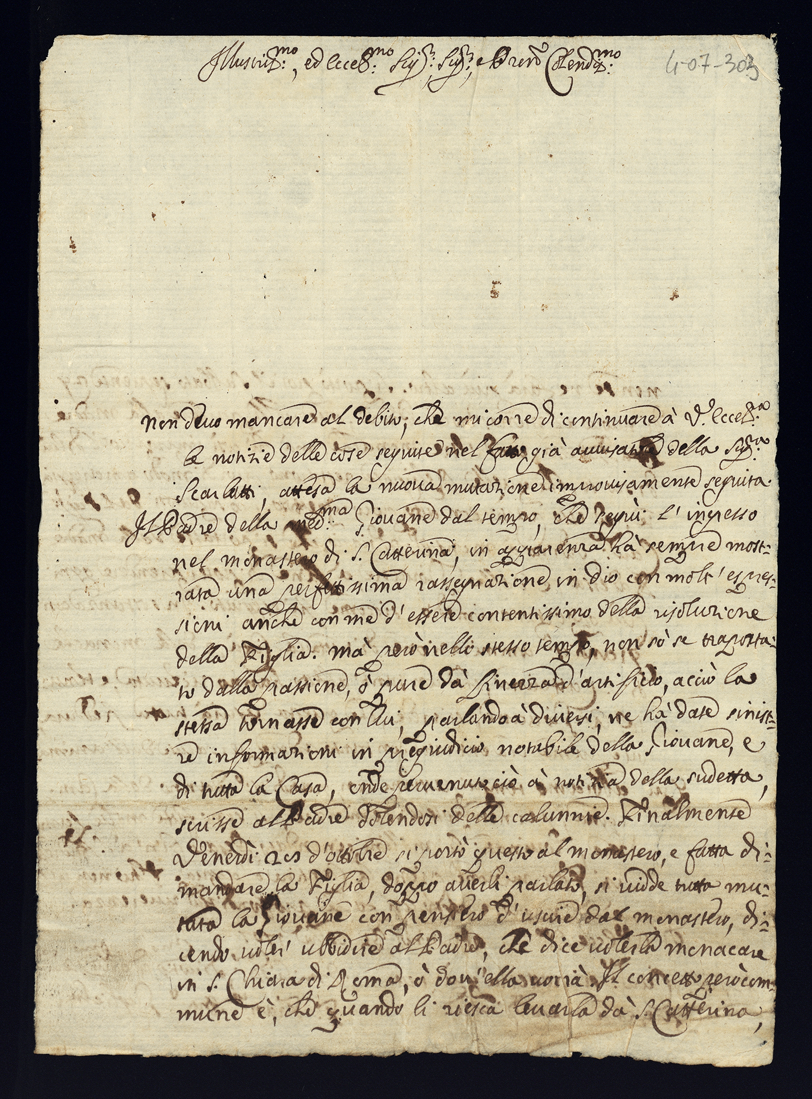 Illustriss.mo, ed Ecce.mo Sig.r, Sig.r, e Pren.e Colendiss.mo
4-07-303
Non devo mancare al debito, che mi corre di continuare à V. Ecce.a
le notizie delle cose seguite nel fatto già avvisato della Sig.ra
Scarlatti, attesa la nuova mutazione improvisamente seguita
Il Padre della med.ma Giovane dal tempo, che seguì l'ingresso
nel monastero di S. Catterina, in apparenza hà sempre most-
rata una perfettissima rassegnazione in dio con molt'espres-
sioni anche con me d'essere contentissimo della risoluzione
della Figlia. mà però nello stesso tempo, non sò se trasporta-
to dalla passione, ò pure dà finezza d'artificio, acciò la
stessa tornasse con lui, parlando à diversi, ne hà date sinist-
re informazioni in pregiudicio notabile della Giovane, e
di tutta la Casa, onde pervenute ciò à notizia della sudetta,
scrisse al Padre dolendosi delle calunnie. Finalmente
Venerdì 20 d'ottobre si portò questo al monastero, e fatta di-
mandare la Figlia, doppo averli parlato, si vidde tutta mu-
tata la Giovane con pensiero d'uscire dal monastero, di-
cendo voler ubbidire al Padre, che dice volerla monacare
in S. Chiara di Roma, ò dov'ella vorrà. Il concetto però com-
mune è, che quando li riesca levarla dà S. Catterina,